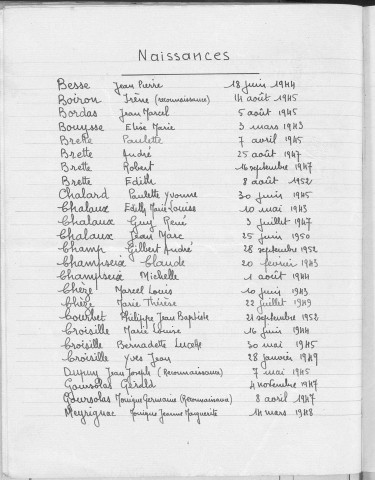 Naissances
Besse Jean Pierre 18 juin 1944
Boiron Irène (reconnaissance) 14 août 1945
Bordas Jean Marcel 5 août 1945
Bouysse Elise Marie 3 mars 1943
Brette Paulette 7 avril 1945
Brette André 25 août 1947
Brette Robert 16 septembre 1947
Brette Edith 8 août 1952
Chalard Paulette Yvonne 30 juin 1945
Chalaux Edith Marie Louise 10 mai 1943
Chalaux Guy René 3 juillet 1947
Chalaux Jean Marc 25 juin 1950
Champ Gilbert André 28 septembre 1952
Champseix Claude 20 février 1943
Champseix Michelle 1 août 1944
Chèze Marcel Louis 10 juin 1943
Chèze Marie Thérèse 22 juillet 1949
Courbet Philippe Jean Baptiste 21 septembre 1952
Croisille Marie Louise 16 juin 1944
Croisille Bernadette Lucette 30 mai 1945
Croisille Yves Jean 28 janvier 1949
Dupuy Jean Joseph (Reconnaissance) 7 mai 1945
Goursolas Gérald 4 novembre 1947
Goursolas Monique Germaine (Reconnaissance) 8 avril 1947
Meyrignac Monique Jeanne Marguerite 14 mars 1948